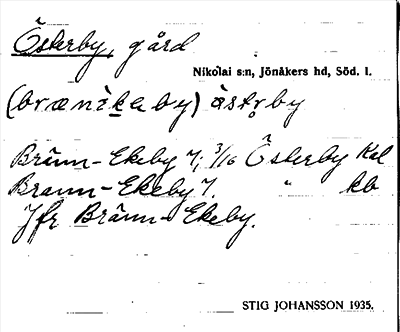 Österby, gård
Nikolai s:n, Jönåkers hd, Söd. l.
(brænèkeby) ästr̥by
Bränn-Ekeby 7; 3/16 Österby Kal
Brann-Ekeby 7. " kb
Jfr Bränn-Ekeby.
STIG JOHANSSON 1935.